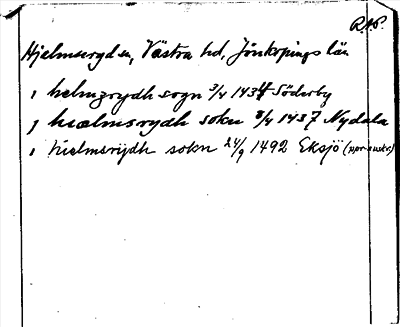 RAP.
Hjelmseryd sn, Västra hd, Jönköpings län
i helmzrydh sogn 3/4 1434 Söderby
i hiælmsrydh sokn 8/4 1437 Nydala
i hielmsrijdh sokn 24/9 1492 Eksjö